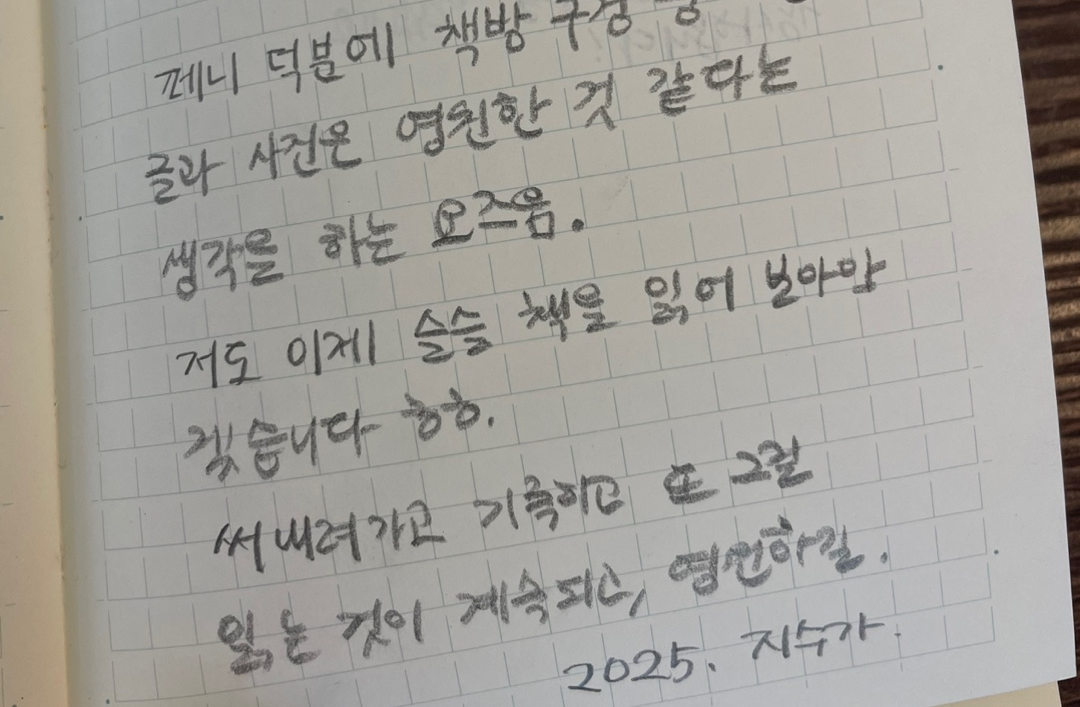 페니 덕분에 책방 구경
글과 사진은 영원한 것 같다는
생각을 하는 요즈음.
저도 이제 슬슬 책을 읽어 보아야
겠습니다 ㅎㅎ.
써내려가고 기록하고 또 그걸
읽는 것이 계속되고, 영원하길.
2025. 지수가.